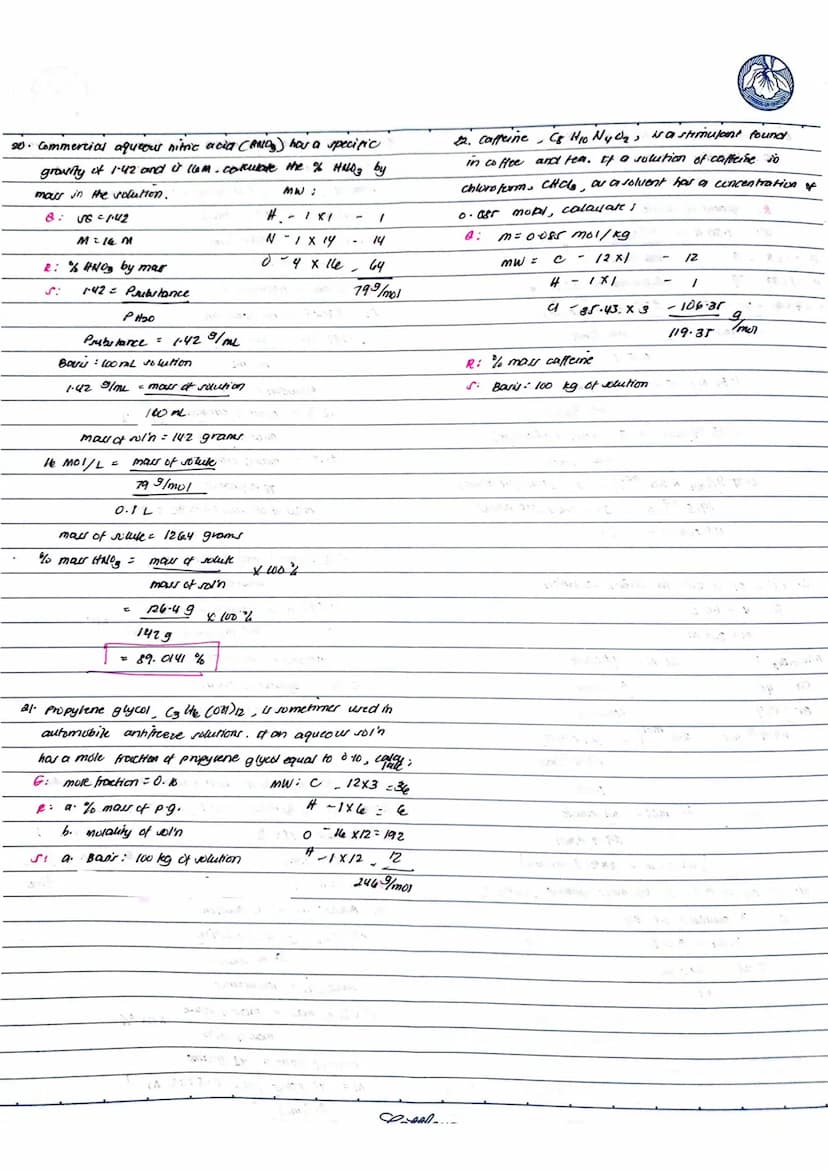 20. Commercial aqueous nitric acid (HNO3) has a specific
gravity of 1.42 and is 16 M. calculate the % HNO3 by
mass in the solution.
MW:
G: SG = 1.42
H - 1 x 1 - 1
M = 16 M
N - 1 x 14 - 14
R: % HNO3 by mass
O - 4 x 16 - 64
79 g/mol
S: 1.42 = ρsubstance
ρ H2O
ρsubstance = 1.42 g/mL
Basis: 100 mL solution
1.42 g/mL = mass of solution
100 mL
mass of sol'n = 142 grams
16 mol/L = mass of solute
79 g/mol
0.1 L
mass of solute = 126.4 grams
% mass HNO3 = mass of solute x 100 %
mass of sol'n
= 126.4 g x 100 %
142 g
= 89.0141 %
21. Propylene glycol, C3 H6 (OH)12, is sometimes used in
automobile antifreeze solutions. If an aqueous sol'n
has a mole fraction of propylene glycol equal to 0.10, calculate:
G: mole fraction = 0.10
MW: C - 12x3 = 36
R: a. % mass of p.g.
H - 1x6 = 6
b. molality of sol'n
O - 16 x12 = 192
S: a. Basis: 100 kg of solution
H - 1x12 - 12
246 g/mol
22. Caffeine, C8 H10 N4 O2, is a stimulant found
in coffee and tea. If a solution of caffeine in
chloroform, CHCl3, as a solvent has a concentration of
0.085 molal, calculate:
G: m = 0.085 mol/kg
MW = C - 12 x 1 - 12
H - 1 x 1 - 1
Cl - 35.45 x 3 - 106.35
119.35 g/mol
R: % mass caffeine
S: Basis: 100 kg of solution